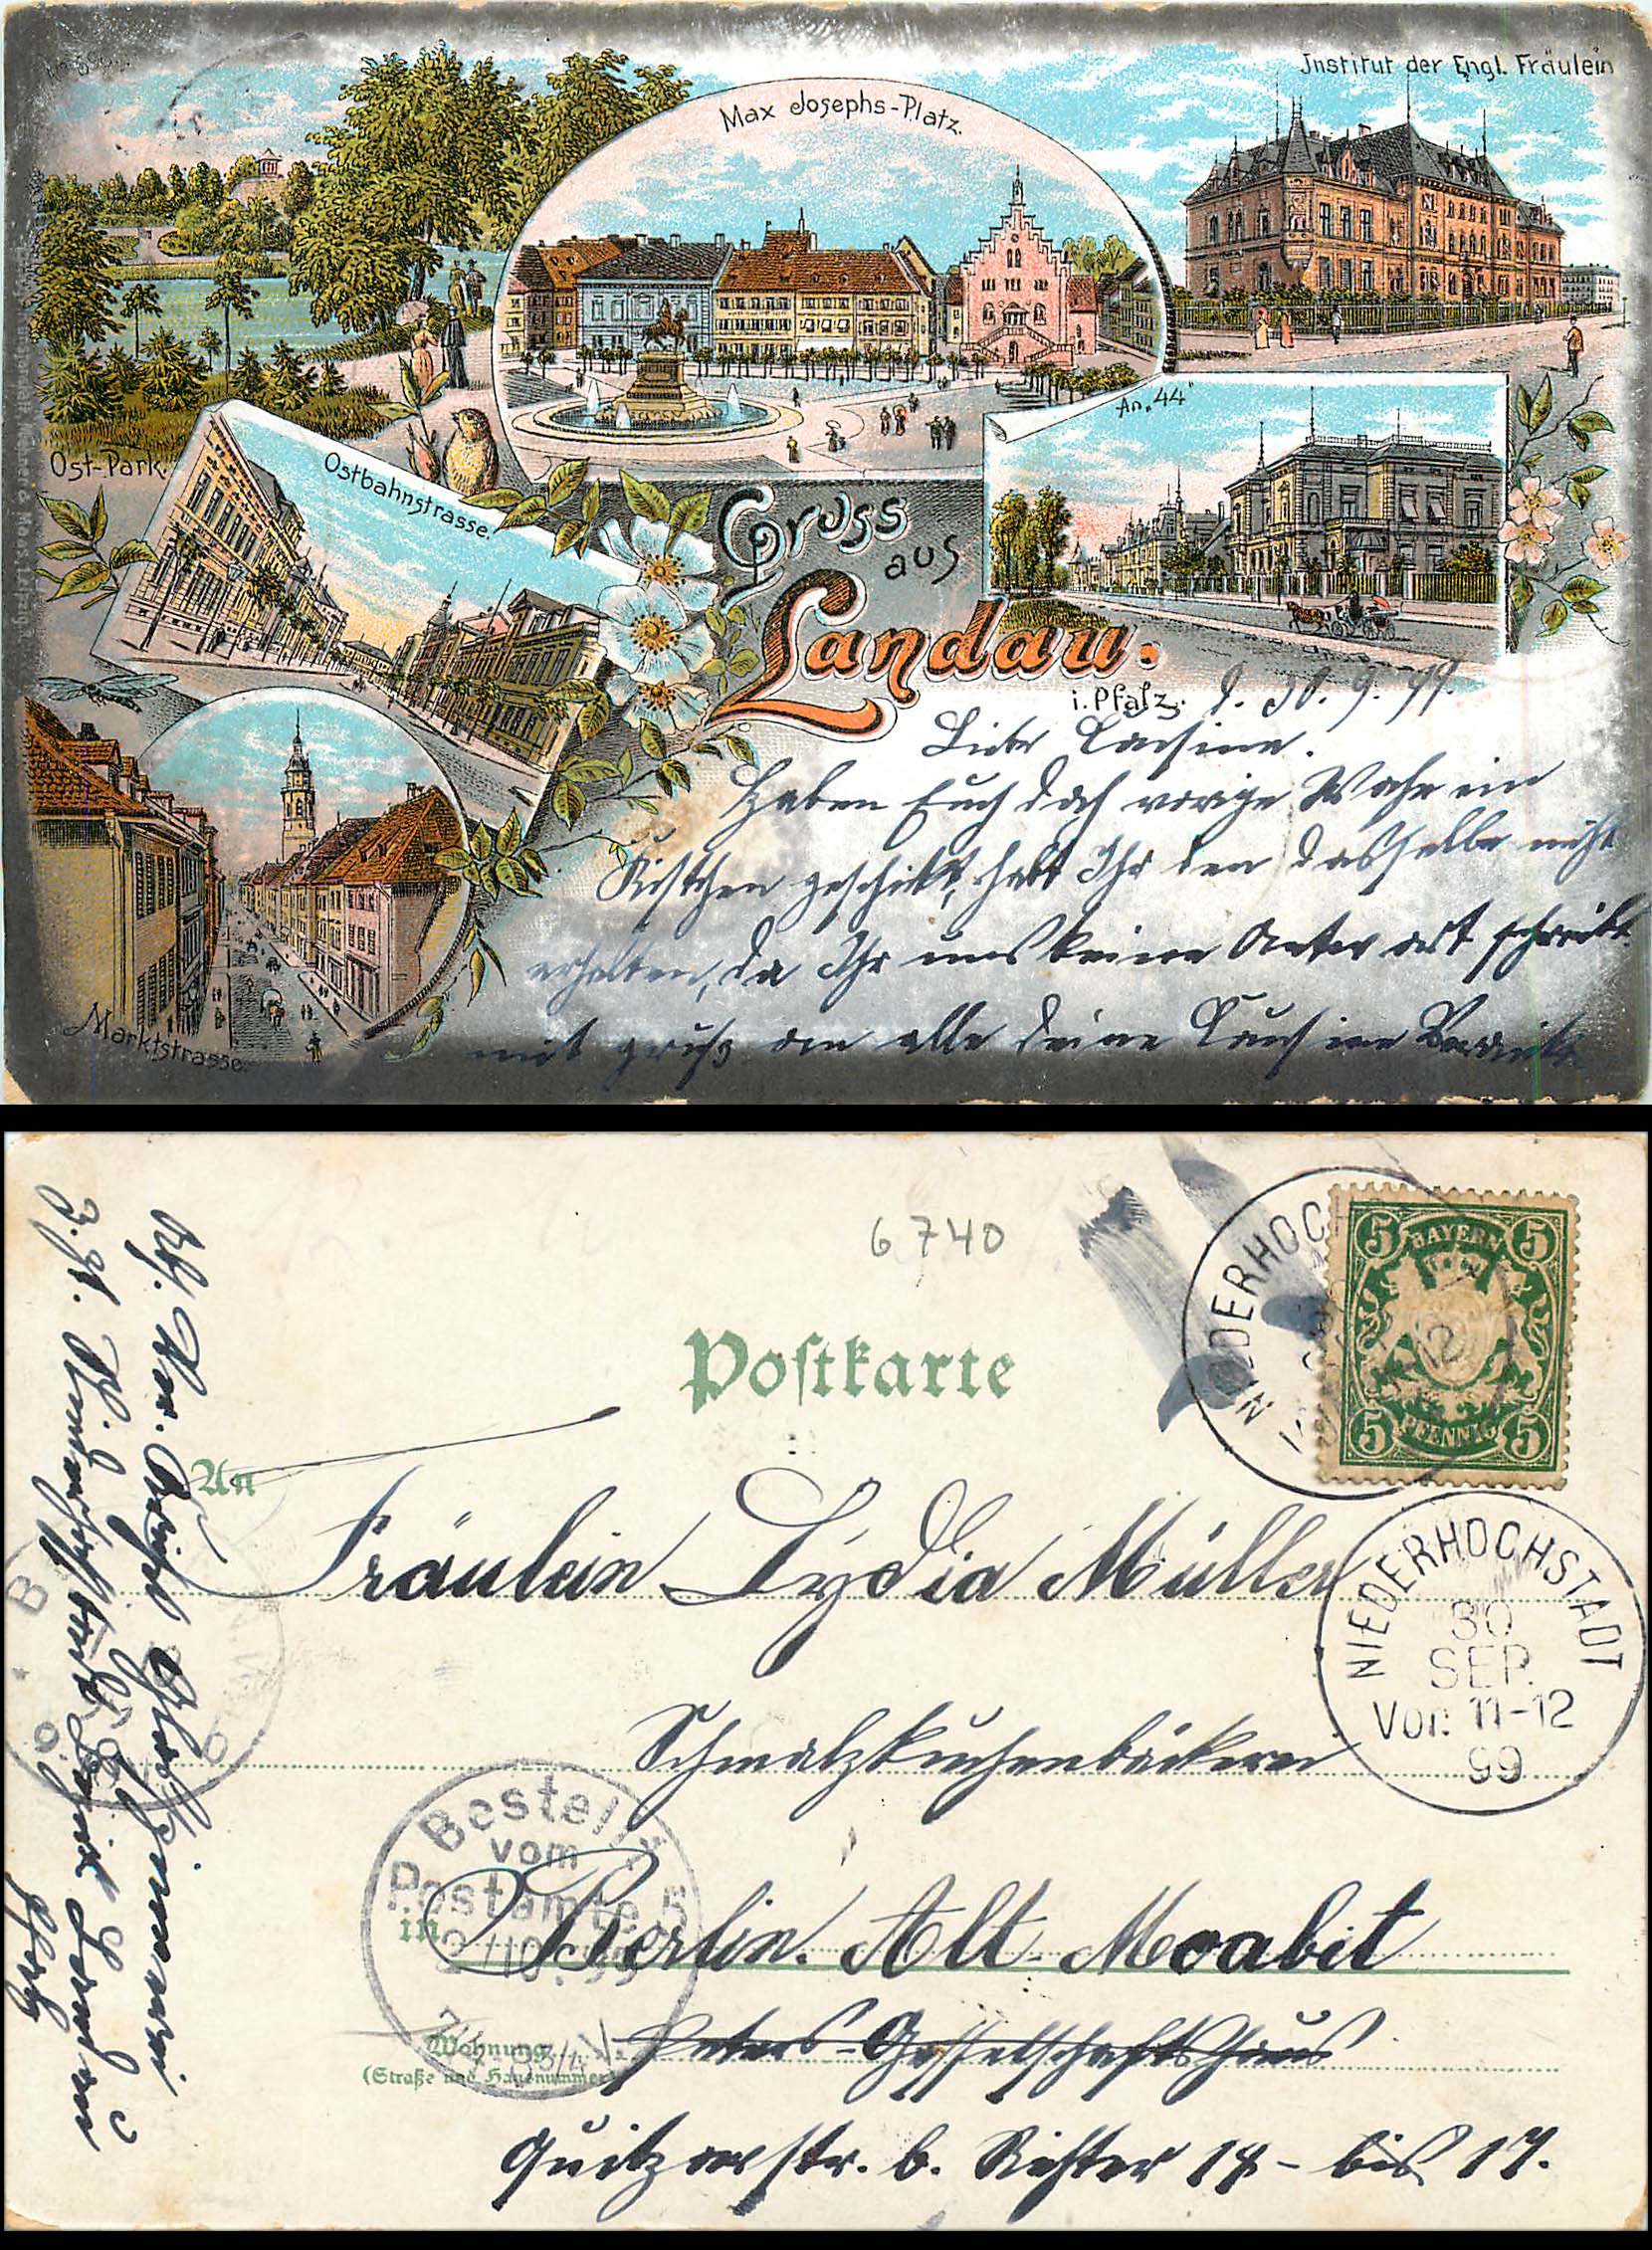 Institut der Engl. Fräulein
Max Josephs-Platz.
An „44"
Ost-Park.
Ostbahnstrasse.
Gruss
aus
Landau.
i. Pfalz.
Marktstrasse.
d. 30. 9. 99.
Liebe Cousine.
Haben Euch doch vorige Woche ein
Kistchen geschikt, habt Ihr den dasselbe nicht
erhalten, da Ihr uns keine Antwort schreibt.
mit gruß an alle deine Cousine
6740
BAYERN
5 5
5 5
PFENNIG
NIEDERHOCHSTADT
30
SEP.
Vor. 11-12
99
Postkarte
An
Fräulein Lydia Müller
Schmalzkuchenbäckerei
Bestellt
vom
Postamte 5
2/10.99
in Berlin. Alt-Moabit
Wohnung
(Straße und Hausnummer)
Peters-Gesellschaftshaus
Quitzowstr. b. Richter 14-bis 17.
Abs.
z. Zt.
Pfalz